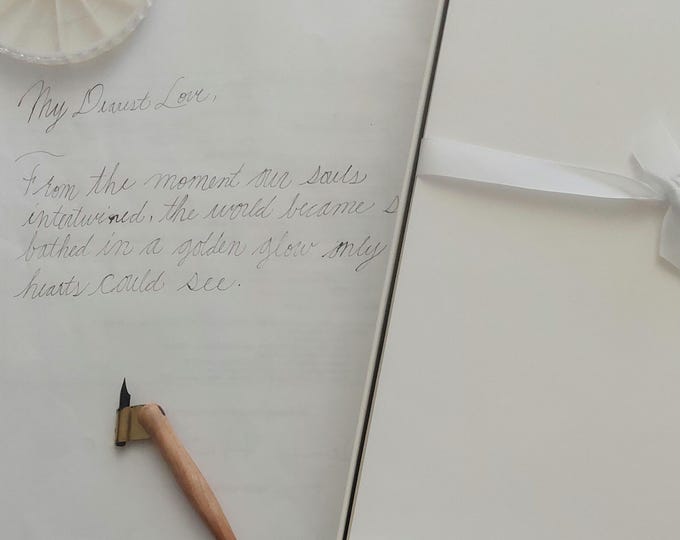 My Dearest Love,
From the moment our souls
intertwined, the world became
bathed in a golden glow only
hearts could see.